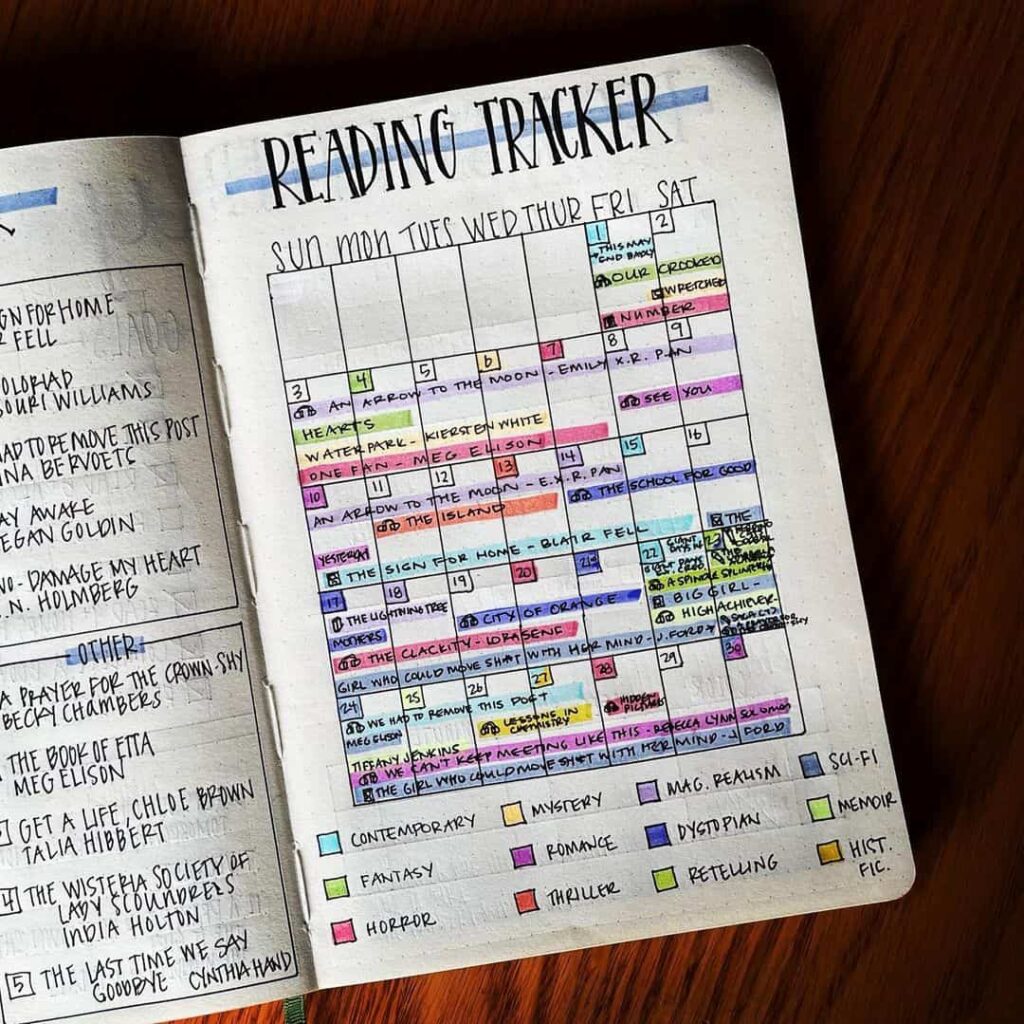 GN FOR HOME
FELL
OLORIAD
OURI WILLIAMS
AD TO REMOVE THIS POST
NA BERVOETS
AY AWAKE
EGAN GOLDIN
NO- DAMAGE MY HEART
N. HOLMBERG
OTHER
A PRAYER FOR THE CROWN-SHY
BECKY CHAMBERS
THE BOOK OF ETTA
MEG ELISON
GET A LIFE, CHLOE BROWN
TALIA HIBBERT
4 THE WISTERIA SOCIETY OF
LADY SCOUNDRELS
INDIA HOLTON
5 THE LAST TIME WE SAY
GOODBYE CYNTHIA HAND
READING TRACKER
SUN MON TUES WED THUR FRI SAT
1 2
THIS MAY
END BADLY
OUR CROOKED
WRETCHED
NUMBER
3 4 5 6 7 8 9
AN ARROW TO THE MOON - EMILY X.R. PAN
SEE YOU
HEARTS
WATERPARK - KIERSTEN WHITE
ONE FAN - MEG ELISON
10 11 12 13 14 15 16
AN ARROW TO THE MOON - E.X.R. PAN
THE SCHOOL FOR GOOD
THE ISLAND
YESTERDAY
THE
THE SIGN FOR HOME - BLAIR FELL
17 18 19 20 21 22 23
THE LIGHTNING TREE
CITY OF ORANGE
A SPINDLE SPLINTERED
MOTHERS
BIG GIRL -
THE CLACKITY - LORA SENF
HIGH ACHIEVER-
GIRL WHO COULD MOVE SH*T WITH HER MIND - J. FORD
24 25 26 27 28 29 30
WE HAD TO REMOVE THIS POST
HIDDEN
PICTURES
MEG ELISON
LESSONS IN
CHEMISTRY
TIFFANY JENKINS
WE CAN'T KEEP MEETING LIKE THIS - REBECCA LYNN SOLOMON
THE GIRL WHO COULD MOVE SH*T WITH HER MIND - J FORD
CONTEMPORARY MYSTERY MAG. REALISM SCI-FI
FANTASY ROMANCE DYSTOPIAN MEMOIR
HORROR THRILLER RETELLING HIST.
FIC.